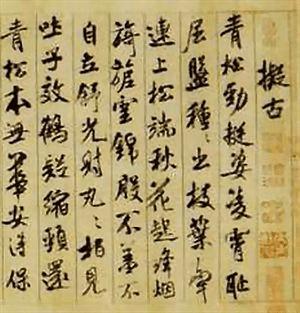 擬古
青松勁挺姿凌霄恥
屈盤種〻出枝葉牽
連上松端秋花起絳烟
旖旎雲錦殷不羞不
自立舒光射丸〻柏見
吐子效鶴疑縮頸還
青松本無華安得保